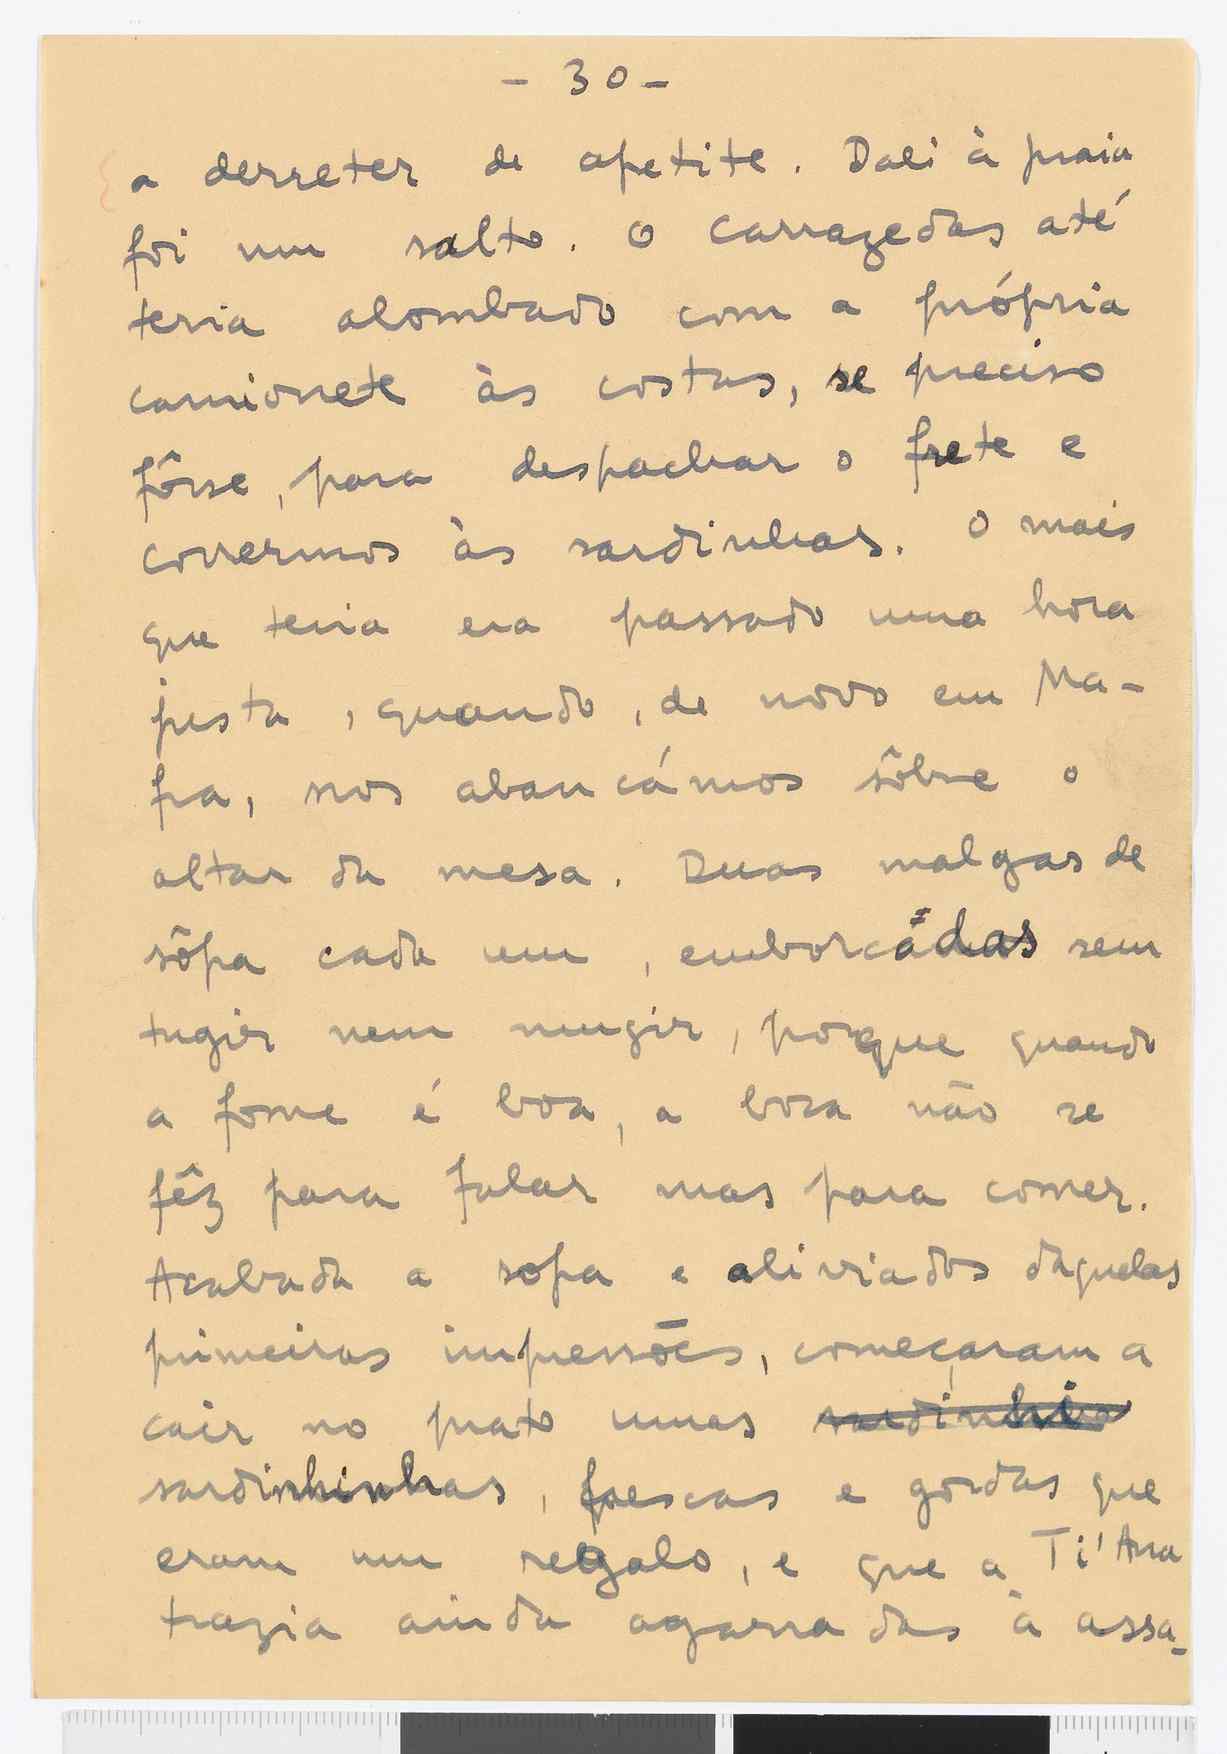 - 30 -
a derreter de apetite. Dali à praia
foi um salto. O Carrazedas até
teria alombado com a própria
camionete às costas, se preciso
fôsse, para despachar o frete e
corrermos às sardinhas. O mais
que teria era passado uma hora
justa, quando, de novo em Ma-
fra, nos abancámos sôbre o
altar da mesa. Duas malgas de
sôpa cada um, emborcadas sem
tugir nem mugir, porque quando
a fome é boa, a boca não se
fêz para falar mas para comer.
Acabada a sopa e aliviados daquelas
primeiras impressões, começaram a
cair no prato umas
sardinhinhas, frescas e gordas que
eram um regalo, e que a Ti' Ana
trazia ainda agarradas à assa-